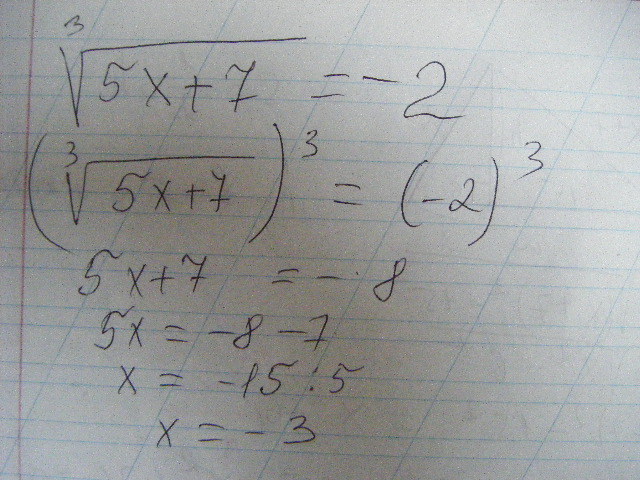 ∛(5x+7) = -2
(∛(5x+7))³ = (-2)³
5x+7 = -8
5x = -8-7
x = -15:5
x = -3